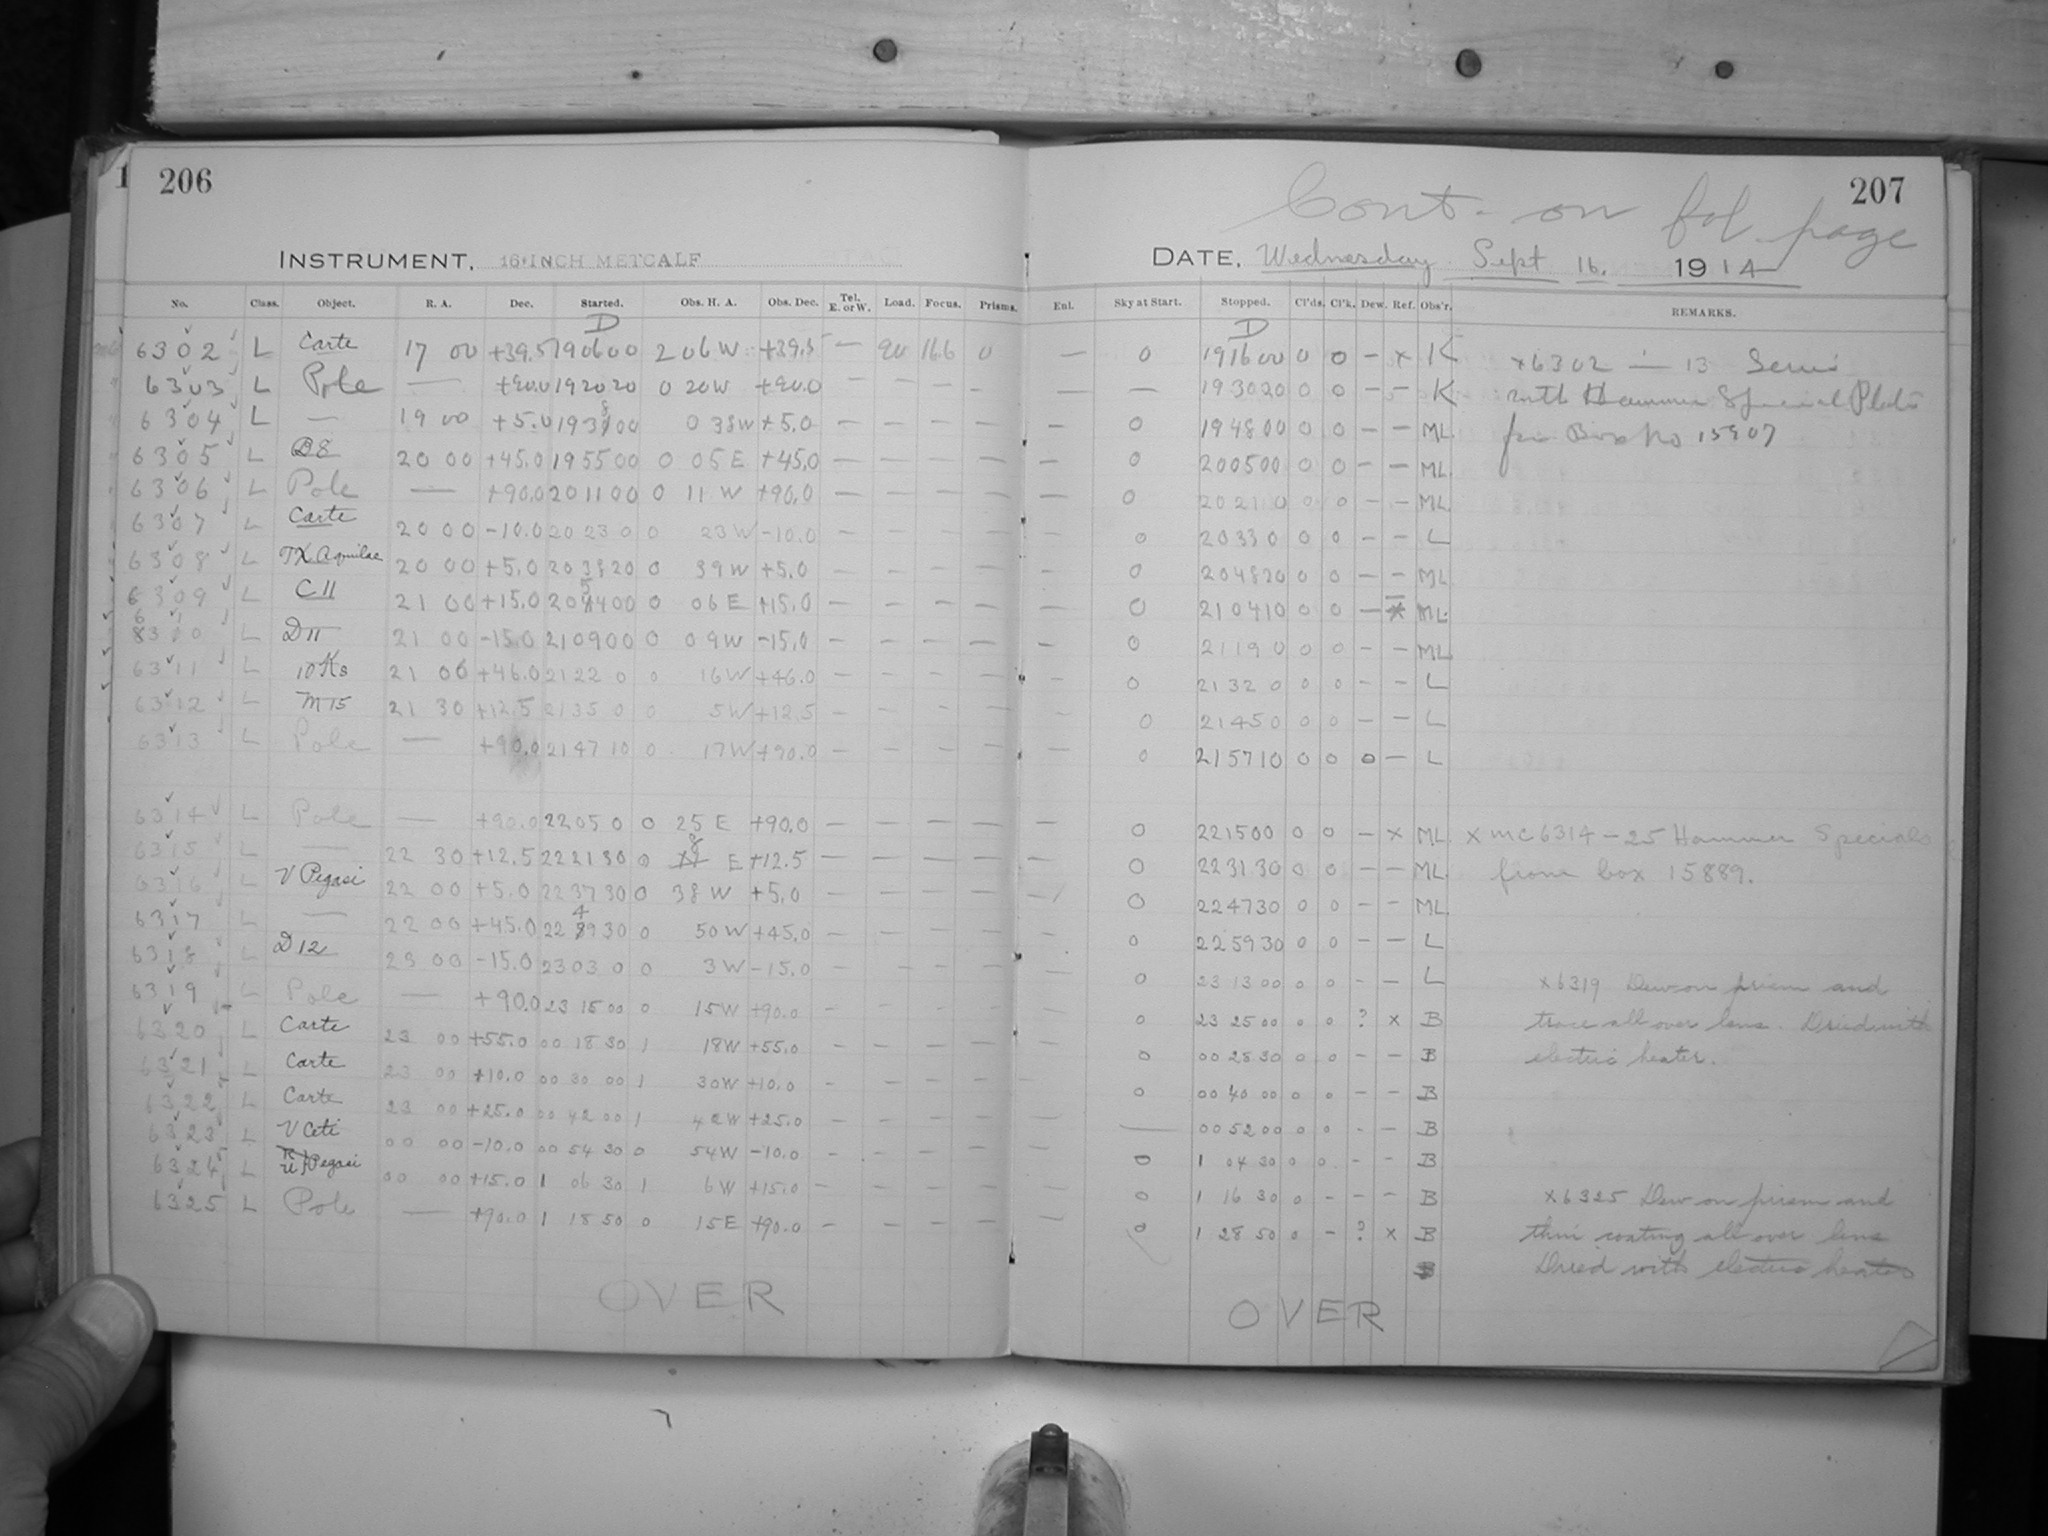 1 206
INSTRUMENT, 16-INCH METCALF
No. Class. Object. R. A. Dec. Started. Obs. H. A. Obs. Dec. Tel. E. or W. Load. Focus. Prisms.
D
6302 L Carte 17 00 +39.5 190600 2 06 W +39.5 — 90 16.6 0
6303 L Pole — +90.0 192020 0 20W +90.0 — — — -
6304 L — 19 00 +5.0 193800 0 38W +5.0 — — — —
6305 L D8 20 00 +45.0 195500 0 05 E +45.0 — — — —
6306 L Pole — +90.0 201100 0 11 W +90.0 — — — —
6307 L Carte 20 00 -10.0 2023 0 0 23W -10.0 — — — —
6308 L TX Aquilae 20 00 +5.0 203820 0 39W +5.0 — — — —
6309 L C11 21 00 +15.0 205400 0 06 E +15.0 — — — —
6310 L D11 21 00 -15.0 210900 0 09W -15.0 — — — —
6311 L 10Ks 21 00 +46.0 2122 0 0 16W +46.0 — — — —
6312 L M15 21 30 +12.5 2135 0 0 5W +12.5 — — — —
6313 L Pole — +90.0 214710 0 17W +90.0 — — — —
6314 L Pole — +90.0 2205 0 0 25 E +90.0 — — — —
6315 L — 22 30 +12.5 222130 0 8 E +12.5 — — — —
6316 L V Pegasi 22 00 +5.0 223730 0 38 W +5.0 — — — —
6317 L — 22 00 +45.0 224930 0 50W +45.0 — — — —
6318 L D12 23 00 -15.0 2303 0 0 3W -15.0 — — — —
6319 L Pole — +90.0 23 15 00 0 15W +90.0 — — — —
6320 L Carte 23 00 +55.0 00 18 30 1 18W +55.0 — — — —
6321 L Carte 23 00 +10.0 00 30 00 1 30W +10.0 — — — —
6322 L Carte 23 00 +25.0 00 42 00 1 42W +25.0 — — — —
6323 L V Ceti 00 00 -10.0 00 54 30 0 54W -10.0 — — — —
6324 L Pegasi 00 00 +15.0 1 06 30 1 6W +15.0 — — — —
6325 L Pole — +90.0 1 18 50 0 15E +90.0 — — — —
OVER
207
Cont. on fol. page
DATE, Wednesday Sept 16, 1914
Enl. Sky at Start. Stopped. Cl'ds. Cl'k. Dew. Ref. Obs'r. REMARKS.
D
— 0 191600 0 0 - x K x6302 — 13 Semi
— — 193020 0 0 - - K with Hammer Special Plate
0 194800 0 0 — — ML
— 0 200500 0 0 — — ML
— 0 202110 0 0 - - ML
— 0 20330 0 0 — — L
— 0 204820 0 0 — — ML
— 0 210410 0 0 — * ML
— 0 21190 0 0 - - ML
— 0 21320 0 0 - - L
— 0 21450 0 0 — — L
— 0 215710 0 0 0 — L
— 0 221500 0 0 — x ML x MC6314-25 Hammer Specials
— 0 223130 0 0 — — ML from box 15889.
— 0 224730 0 0 - - ML
— 0 225930 0 0 — — L
— 0 23 13 00 0 0 - - L x6319 Dew on prism and
0 23 25 00 0 0 ? x B trace all over lens. Dried with
0 00 28 30 0 0 - - B electric heater.
0 00 40 00 0 0 - - B
— 00 52 00 0 0 - - B
0 1 04 30 0 0 - - B
0 1 16 30 0 - - - B x6325 Dew on prism and
0 1 28 50 0 - ? x B thin coating all over lens
Dried with electric heater
OVER